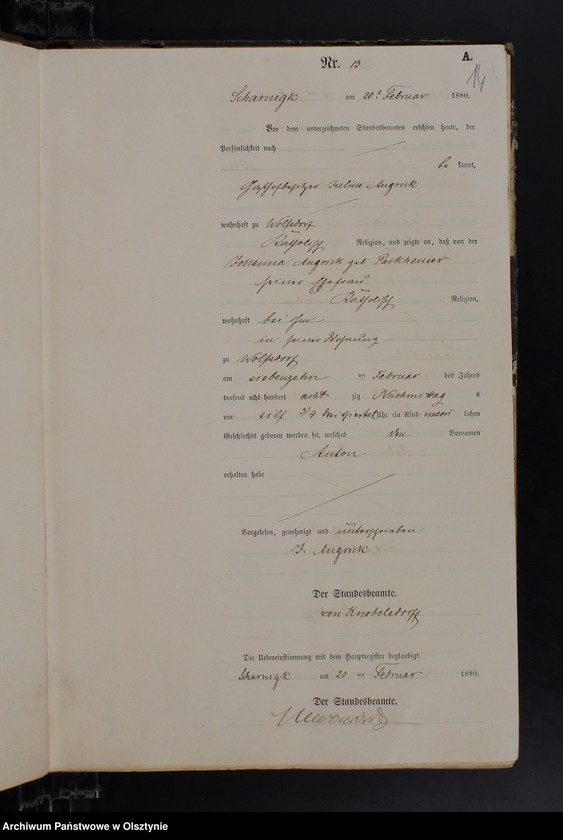 A.
Nr. 13
14
Scharnigk am 20ᵗ Februar 1880.
Vor dem unterzeichneten Standesbeamten erschien heute, der
Persönlichkeit nach
be kannt,
Gasthofbesitzer Julius Angrick
wohnhaft zu Wolfsdorf
Katholisch Religion, und zeigte an, daß von der
Johanna Angrick geb Packheuser
seiner Ehefrau
Katholisch Religion,
wohnhaft bei ihm
in seiner Wohnung
zu Wolfsdorf
am siebenzehn ten Februar des Jahrs
tausend acht hundert acht zig Nachmittag s
um eilf 3/4 dreiviertel Uhr ein Kind männ lichen
Geschlechts geboren worden sei, welches den Vornamen
Anton
erhalten habe
Vorgelesen, genehmigt und unterschrieben
J. Angrick
Der Standesbeamte.
von Knobelsdorff
Die Uebereinstimmung mit dem Hauptregister beglaubigt.
Scharnigk am 20 ten Februar 1880.
Der Standesbeamte.
Archiwum Państwowe w Olsztynie